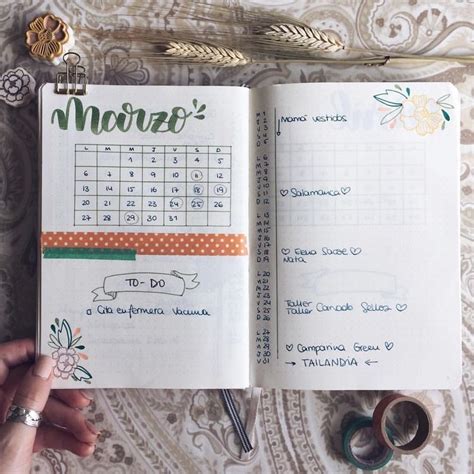 Marzo
L M M J V S D
1 2 3 4 5
6 7 8 9 10 11 12
13 14 15 16 17 18 19
20 21 22 23 24 25 26
27 28 29 30 31
TO-DO
Cita enfermera vacuna
Mamá vestidos
♡ Salamanca ♡
♡ Elena Sacoe ♡
Nata
Taller
Taller Canado Sellos ♡
♡ Campanina Green ♡
→ TAILANDIA ←